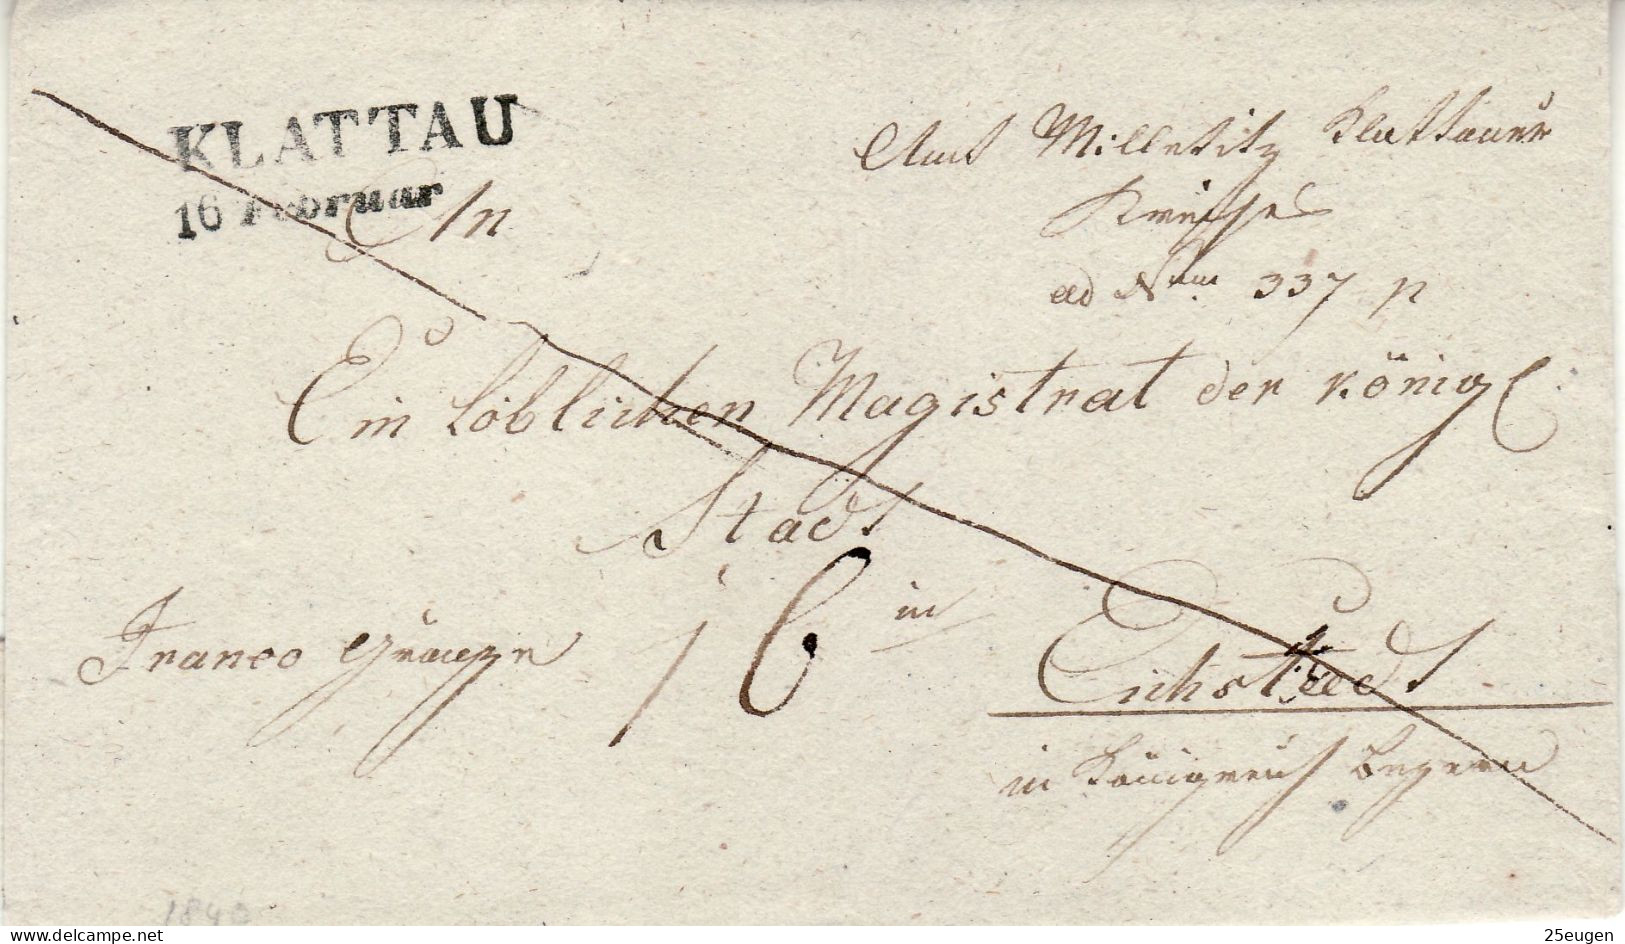 KLATTAU
16 Februar
Amt Milletitz Klattauer
Kreises
ad Num 337 p
An
Ein löblichen Magistrat der königl.
Stadt
Franco Gränze 16 in
Eichstaedt
in Königreich Bayern
1840
www.delcampe.net
25eugen